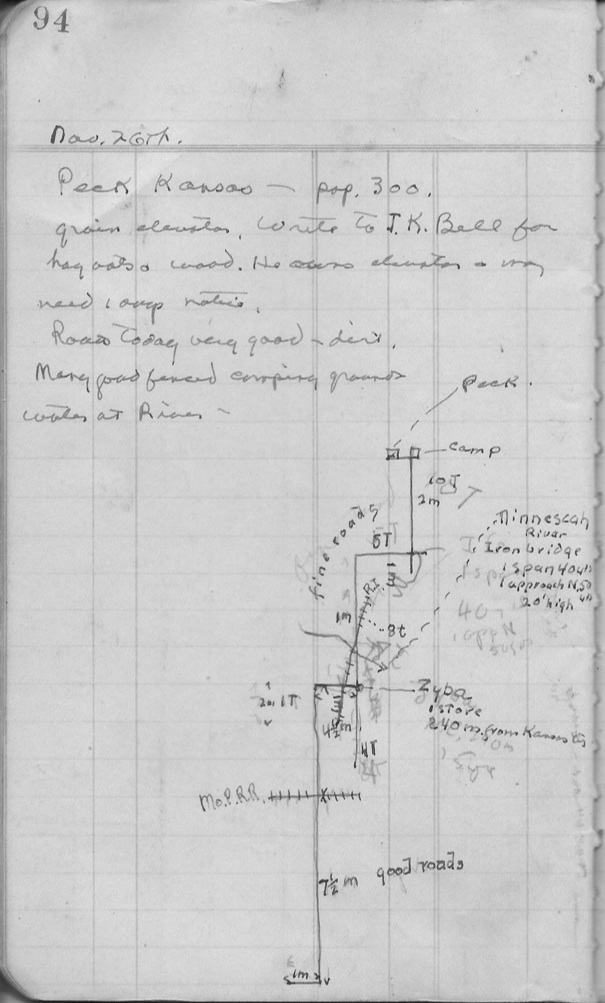 94
Nov. 26th.
Peck Kansas — pop. 300.
grain elevator. Write to J. K. Bell for
hay oats & wood. He owns elevator & may
need camp notice.
Roads Today very good – dirt.
Many good fenced camping grounds
water at River –
Peck.
Camp
10T
2m
fine roads
6T
1m
Ninnescah
River
Iron bridge
1 span 40 yds
1 approach N.
20' high
1m
8t
Zyba
1 store
240 m. from Kansas City
2m 1T
4T
Mo.P.RR.
7½ m good roads
1m